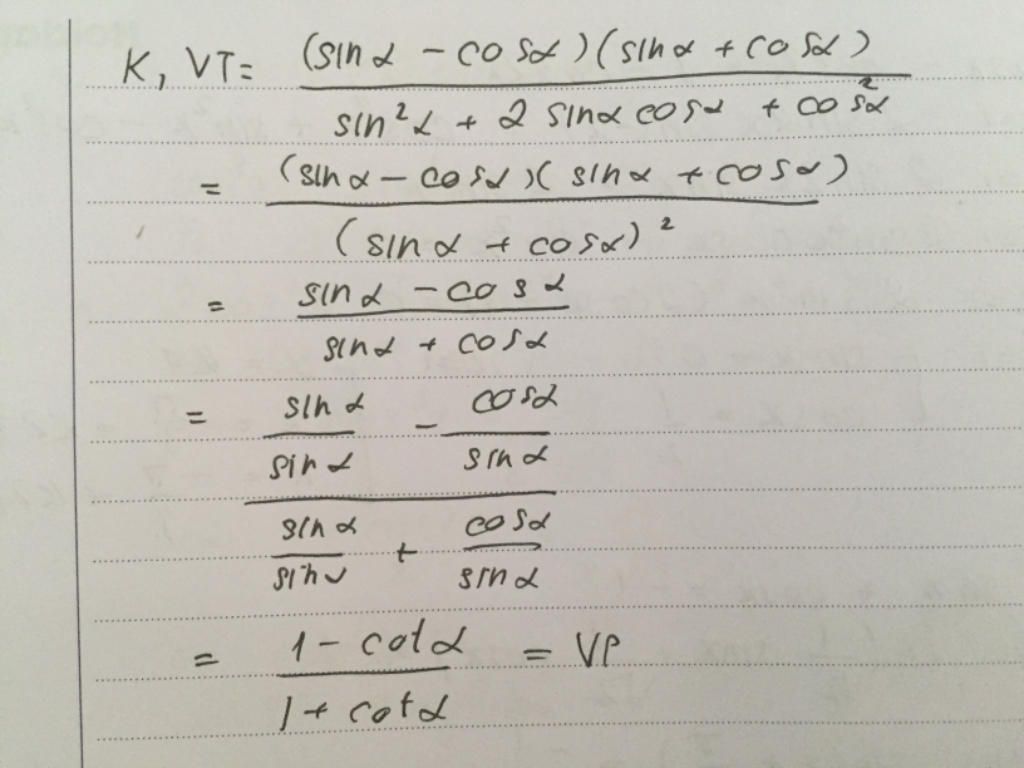 K, VT= (sin α - cos α)(sin α + cos α)
sin²α + 2 sin α cos α + cos²α
= (sin α - cos α)(sin α + cos α)
(sin α + cos α)²
= sin α - cos α
sin α + cos α
= sin α - cos α
sin α sin α
sin α + cos α
sin α sin α
= 1 - cot α = VP
1 + cot α